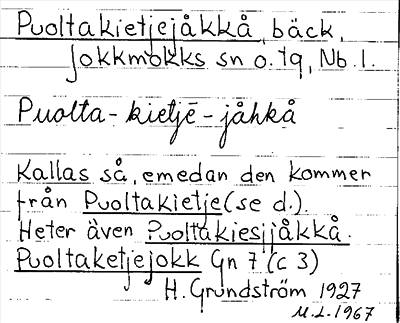 Puoltakietjejåkkå, bäck,
Jokkmokks sn o. tq, Nb. l.
Puolta-kietjē-jåhkå
Kallas så, emedan den kommer
från Puoltakietje (se d.).
Heter även Puoltakiesjjåkkå.
Puoltaketjejokk Gn 7 (c 3)
H. Grundström 1927
M.L. 1967